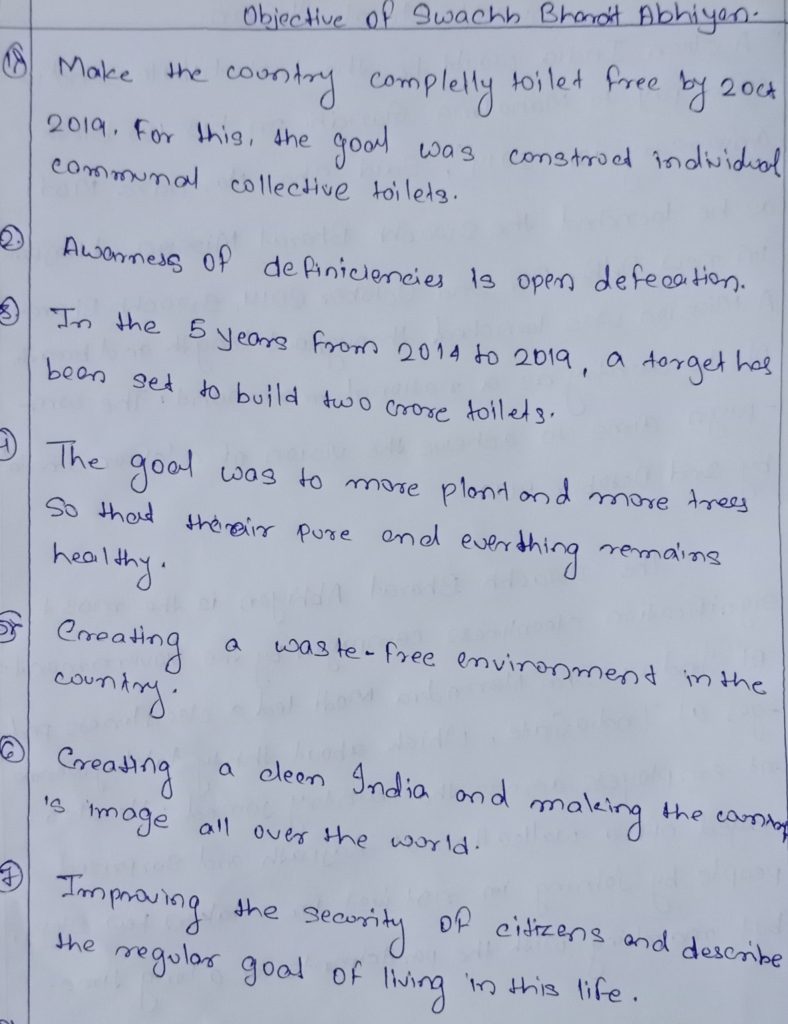 Objective of Swachh Bharat Abhiyan.
① Make the country completly toilet free by 2 oct
2019. For this, the goal was construct individual
communal collective toilets.
② Awarness of definiciencies is open defecation.
③ In the 5 years from 2014 to 2019, a target has
been set to build two crore toilets.
④ The goal was to more plant and more trees
so that air pure and everthing remains
healthy.
⑤ Creating a waste-free environment in the
country.
⑥ Creating a cleen India and making the country
's image all over the world.
⑦ Improving the security of citizens and describe
the regular goal of living in this life.